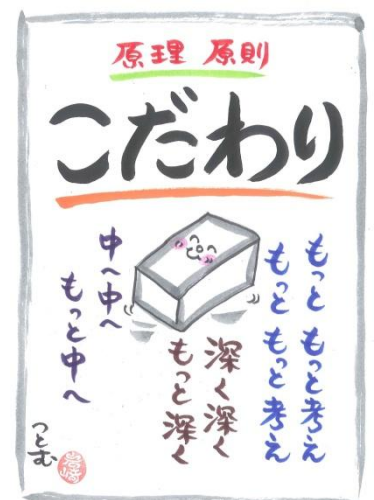 原理 原則
こだわり
もっと もっと考え
もっと もっと考え
深く深く
もっと深く
中へ中へ
もっと中へ
つとむ
岩崎